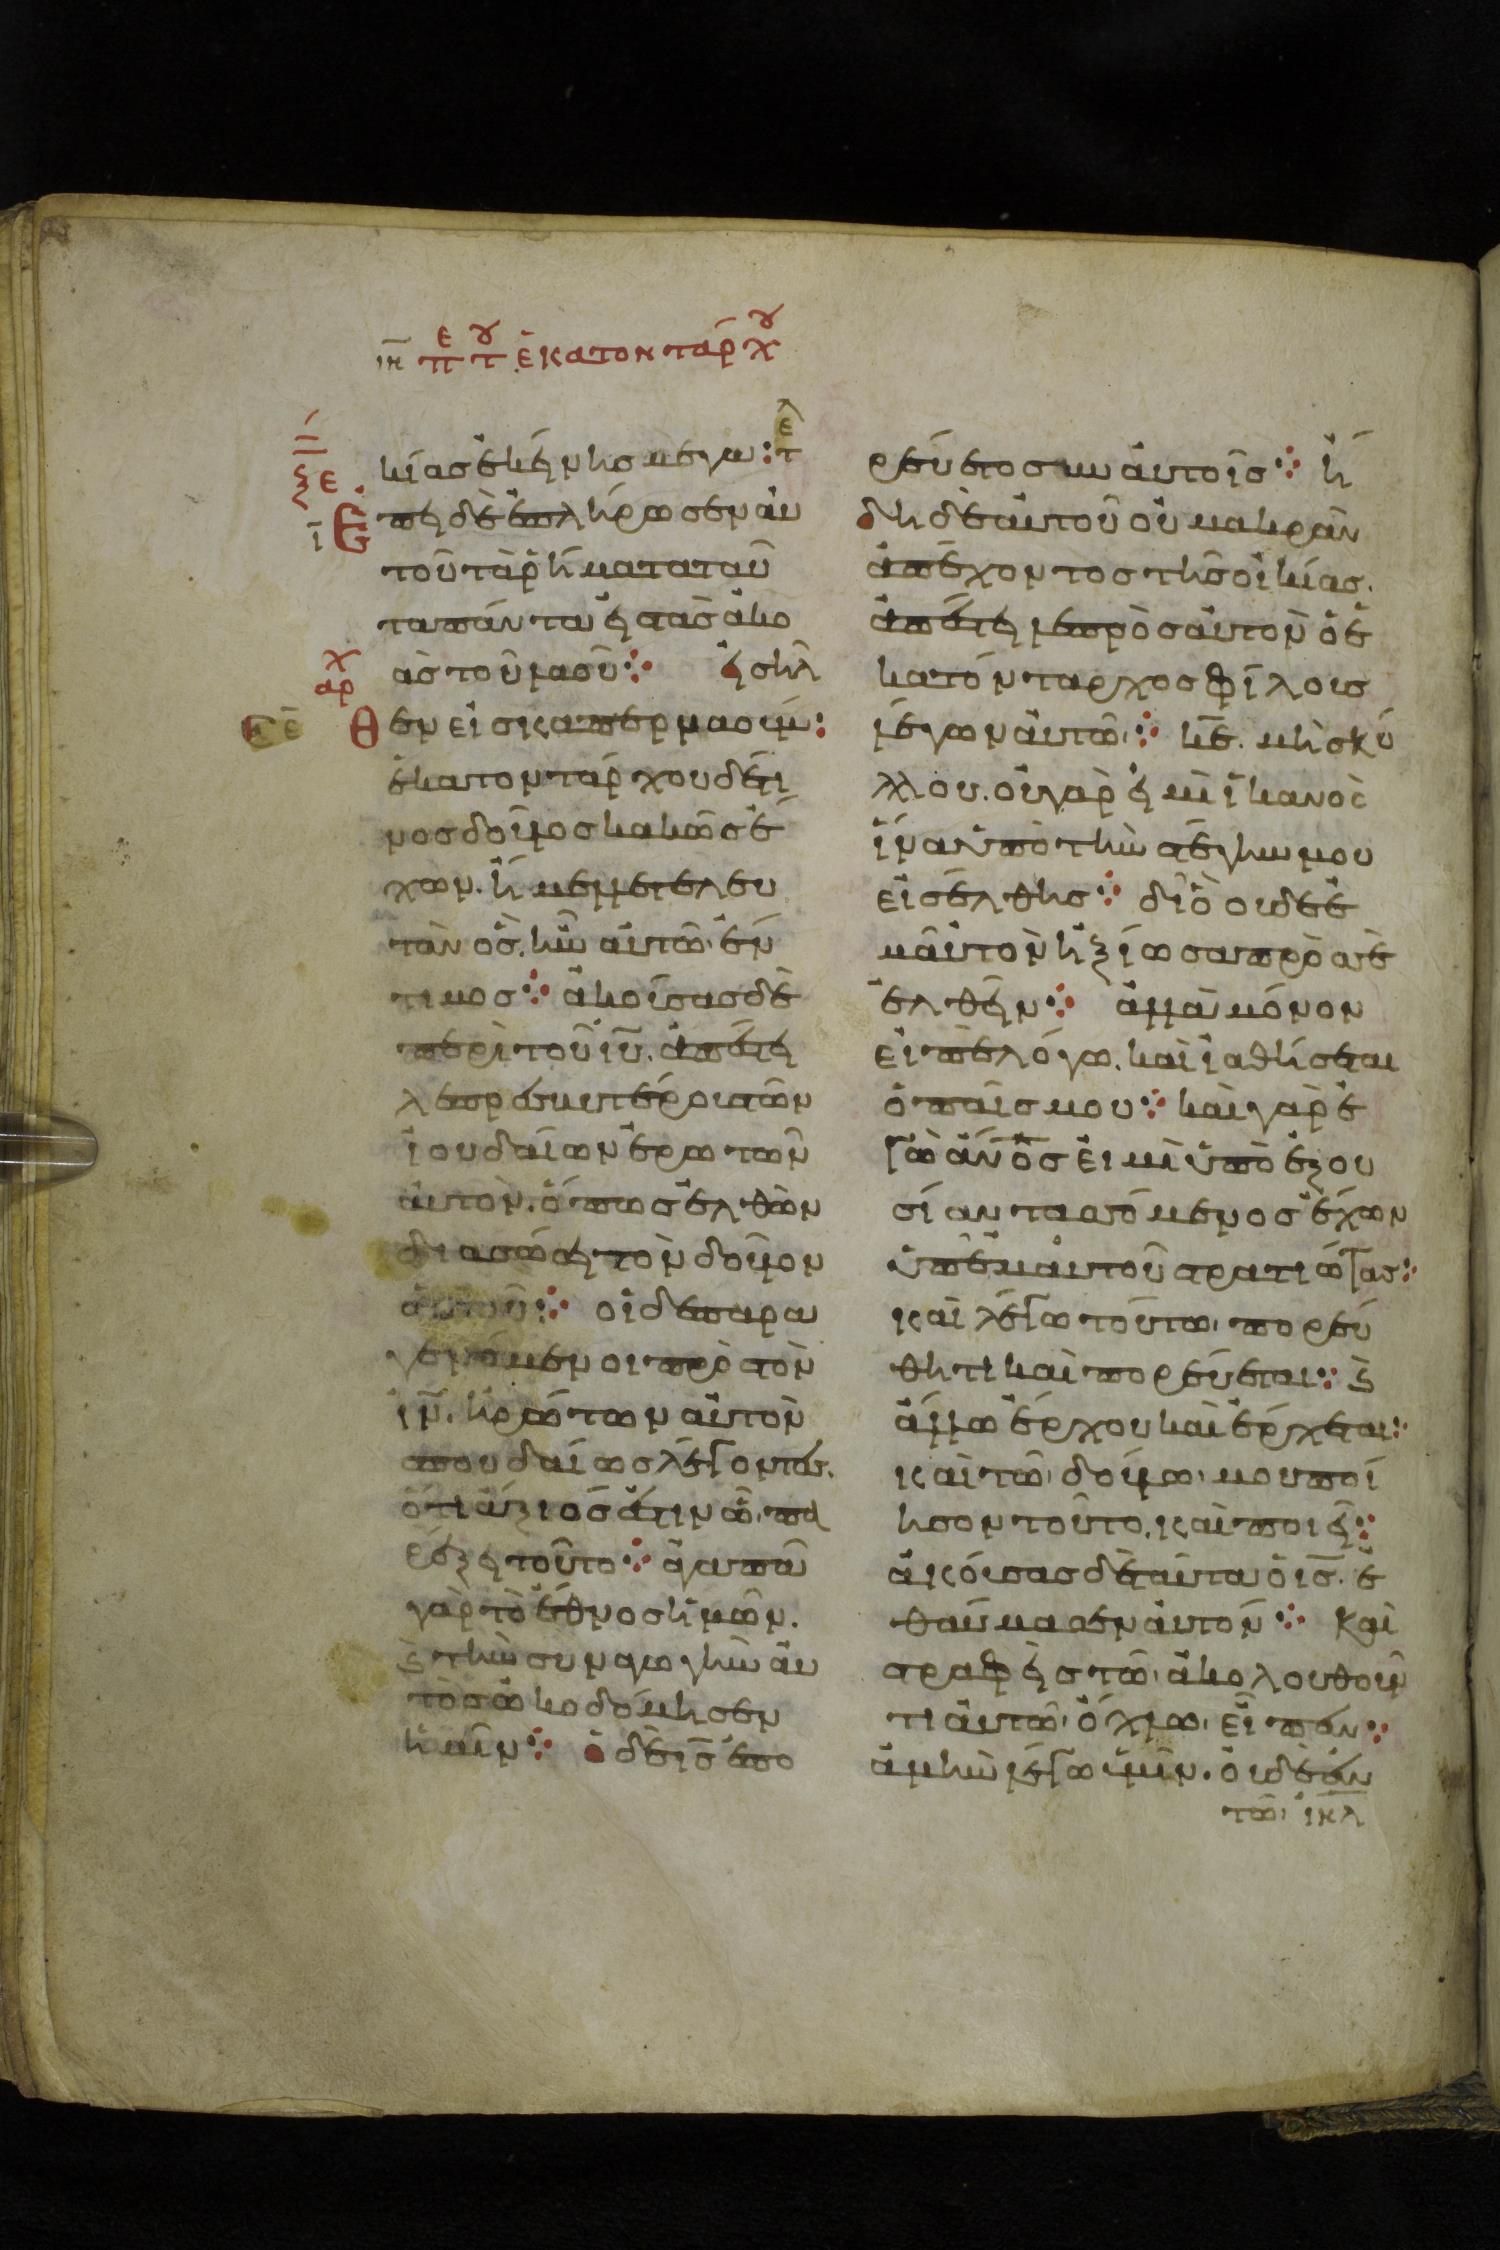 ιη περ τοῦ ἑκατοντάρχου
κίας ἐκείνης μέγα: τε
ξε
Επει δὲ ἐπλήρωσεν αὐ
τοῦ τὰ ῥήματα ταῦ
τα πάντα εἰς τὰς ἀκο
ὰς τοῦ λαοῦ: εἰσῆλ
αρχ
θεν εἰς καπερναούμ:
ἑκατοντάρχου δέ τι
νος δοῦλος κακῶς ἔ
χων. ἤμελλε τελευ
τᾶν ὃς. ἦν αὐτῶ ἔν
τιμος: ἀκούσας δὲ
περὶ τοῦ ιυ. ἀπέστει
λε πρεσβυτέρους τῶν
ἰουδαίων ἐρωτῶν
αὐτὸν. ὅπως ἐλθὼν
διασώσει τὸν δοῦλον
αὐτοῦ: οἱ δὲ παρα
γενόμενοι πρὸς τὸν
ιν. ἠρώτων αὐτὸν
σπουδαίως λέγοντες.
ὅτι ἄξιός ἐστιν ὧ πα
ρέξει τοῦτο: ἀγαπᾶ
γὰρ τὸ ἔθνος ἡμῶν.
καὶ τὴν συναγωγὴν αὐ
τὸς ὠκοδόμησεν
ἡμῖν: ὁ δὲ ις ἐπο
ρεύετο σὺν αὐτοῖς: ἤ
δη δὲ αὐτοῦ οὐ μακρὰν
ἀπέχοντος τῆς οἰκίας.
ἀπέστειλε πρὸς αὐτὸν ὁ ἑ
κατόνταρχος φίλους
λέγων αὐτῶ: κε. μὴ σκύ
λλου. οὐ γὰρ εἰμὶ ἱκανὸς
ἵνα ὑπὸ τὴν στέγην μου
εἰσέλθης: διὸ οὐδὲ ἐ
μαυτὸν ἠξίωσα πρὸς σὲ
ἐλθεῖν: ἀλλὰ μόνον
εἰπὲ λόγω. καὶ ἰαθήσεται
ὁ παῖς μου: καὶ γὰρ ἐ
γὼ ἄνος εἰμὶ ὑπὸ ἐξου
σίαν τασσόμενος ἔχων
ὑπ' ἐμαυτοῦ στρατιώτας:
καὶ λέγω τούτω πορεύ
θητι καὶ πορεύεται: καὶ
ἄλλω ἔρχου καὶ ἔρχεται:
καὶ τῶ δούλω μου ποί
ησον τοῦτο. καὶ ποιεῖ:
ἀκούσας δὲ ταῦτα ὁ ις. ἐ
θαύμασεν αὐτόν: καὶ
στραφεὶς τῶ ἀκολουθοῦν
τι αὐτῶ ὄχλω εἶπεν:
ἀμὴν λέγω ὑμῖν. οὐδὲ ἐν
τῶ ιηλ